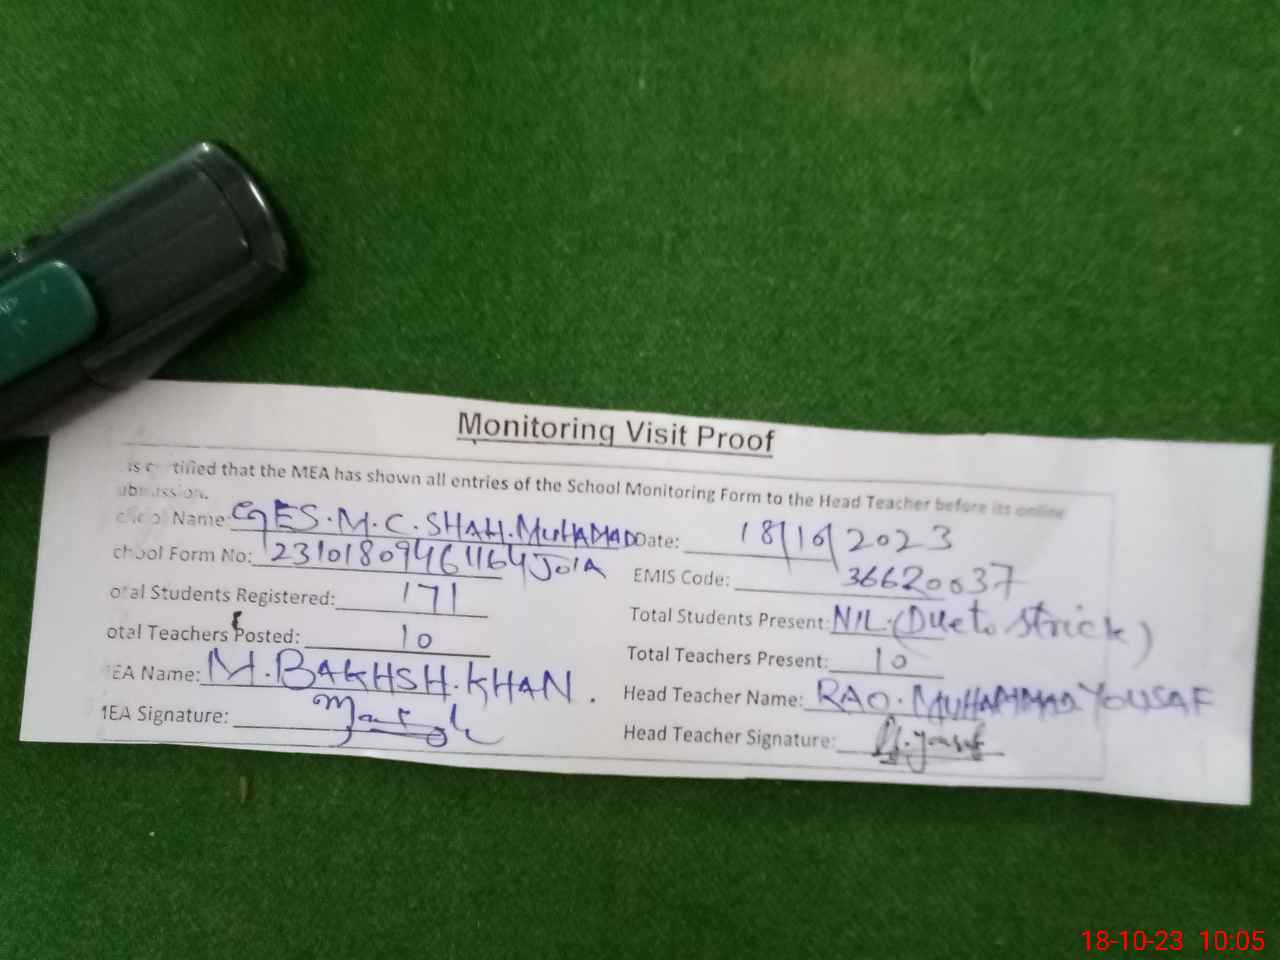 Monitoring Visit Proof
is certified that the MEA has shown all entries of the School Monitoring Form to the Head Teacher before its online
ubmission.
chool Name: GES.M.C.SHAH.MUHAMAD Date: 18/10/2023
JOIA
chool Form No: 23101809461164 EMIS Code: 36620037
otal Students Registered: 171 Total Students Present: NIL.(Due to strick)
otal Teachers Posted: 10 Total Teachers Present: 10
MEA Name: M.BAKHSH.KHAN. Head Teacher Name: RAO.MUHAMMAD YOUSAF
MEA Signature: Head Teacher Signature: M.yousaf
18-10-23 10:05